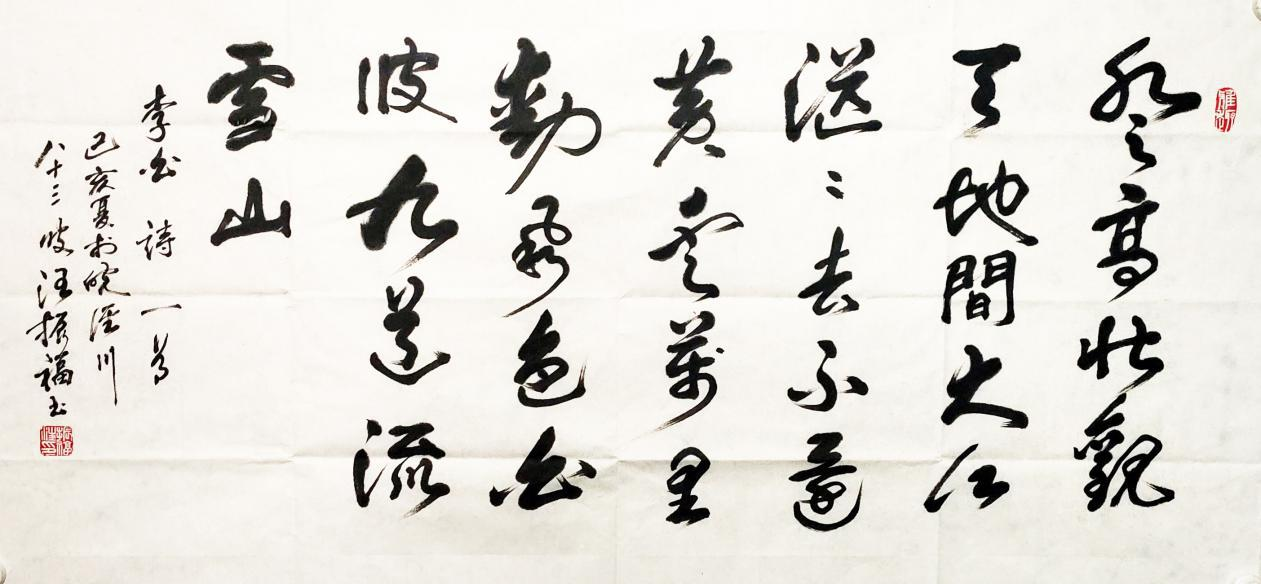 登高壯觀
天地間大江
茫〻去不還
黄雲萬里
動風色白
波九道流
雪山
李白詩一首
己亥夏於皖涇川
八十三汪振福书